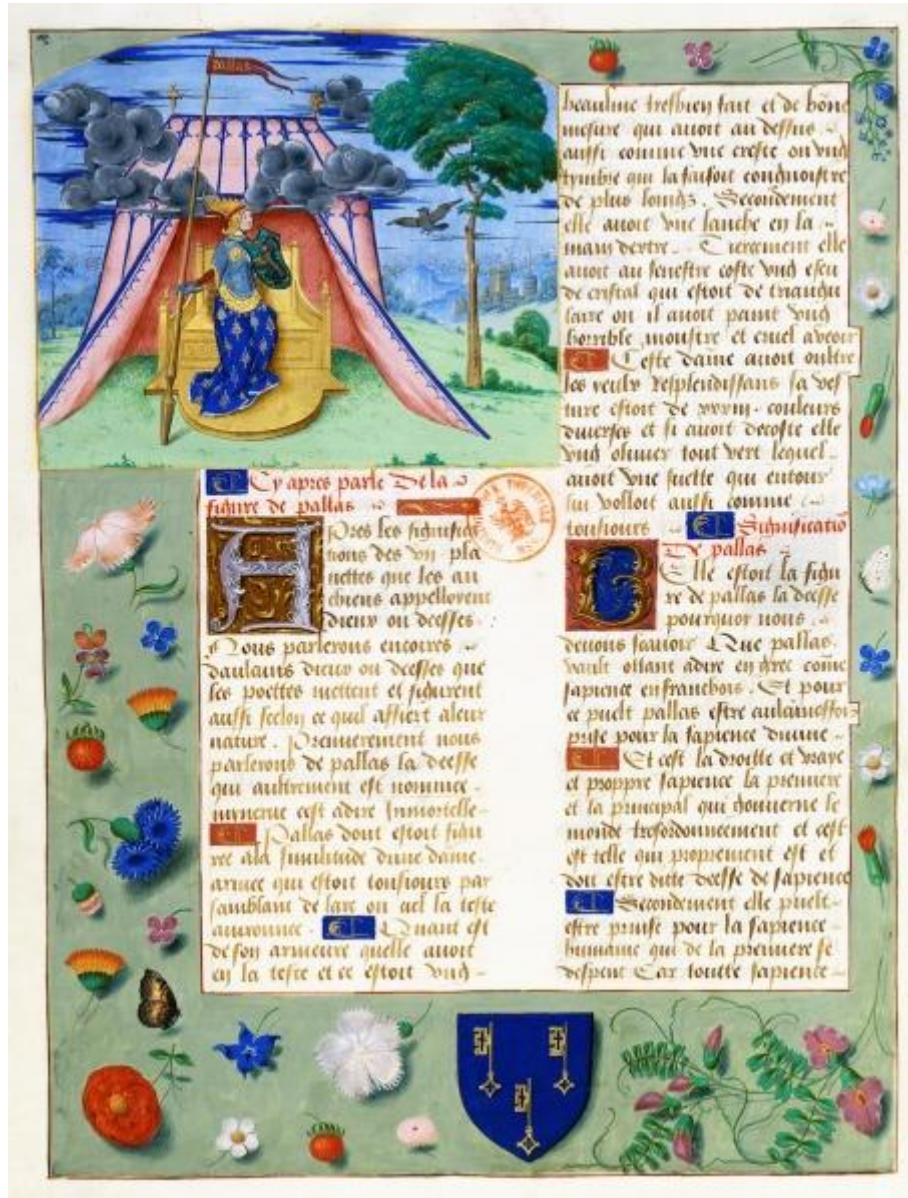 pallas
Cy apres parle De la
figure de pallas
Apres les significa
tions des vii pla
nettes que les an
chiens appelloyent
dieux ou deesses.
Nous parlerons encoires
daulcuns dieux ou deesses que
les poettes mettent et figurent
aussi selon ce quil affiert a leur
nature. Premierement nous
parlerons de pallas la deesse
qui aultrement est nommee
mynerue cest adire Inmortelle
Pallas dont estoit figu
ree ala similitude dune dame
armee qui estoit tousiours par
samblant de larc ou ciel la teste
auironnee. Quant est
de son armeure quelle auoit
en la teste et ce estoit vng
heaulme tresbien fait et de bone
mesure qui auoit au dessus
aussi comme vne creste ou vng
tymbre qui la faisoit congnoistre
de plus loingz. Secondement
elle auoit vne lanche en la
main dextre. Tiercement elle
auoit au senestre coste vng escu
de cristal qui estoit de triangu
laire ou il auoit paint vng
horrible monstre et cruel a veoir
Ceste dame auoit oultre
les yeulx resplendissans sa ves
ture estoit de couleurs
diuerses et si auoit decoste elle
vng oliuier tout vert lequel
auoit vne suette qui entour
lui volloit aussi comme
tousiours Significatio
De pallas
Elle estoit la figu
re de pallas la deesse
pourquoy nous
deuons scauoir Que pallas
vault ottant adire en grec come
sapience en franchois. Et pour
ce puelt pallas estre aulcuneffois
prise pour la sapience diuine
Et cest la droitte et vraye
et proppre sapience la premiere
et la principal qui gouuerne le
monde tresordonneement et cest
est telle qui proprement est et
doit estre ditte deesse de sapience
Secondement elle puelt
estre prinse pour la sapience
humaine qui de la premiere se
despent Car toutte sapience